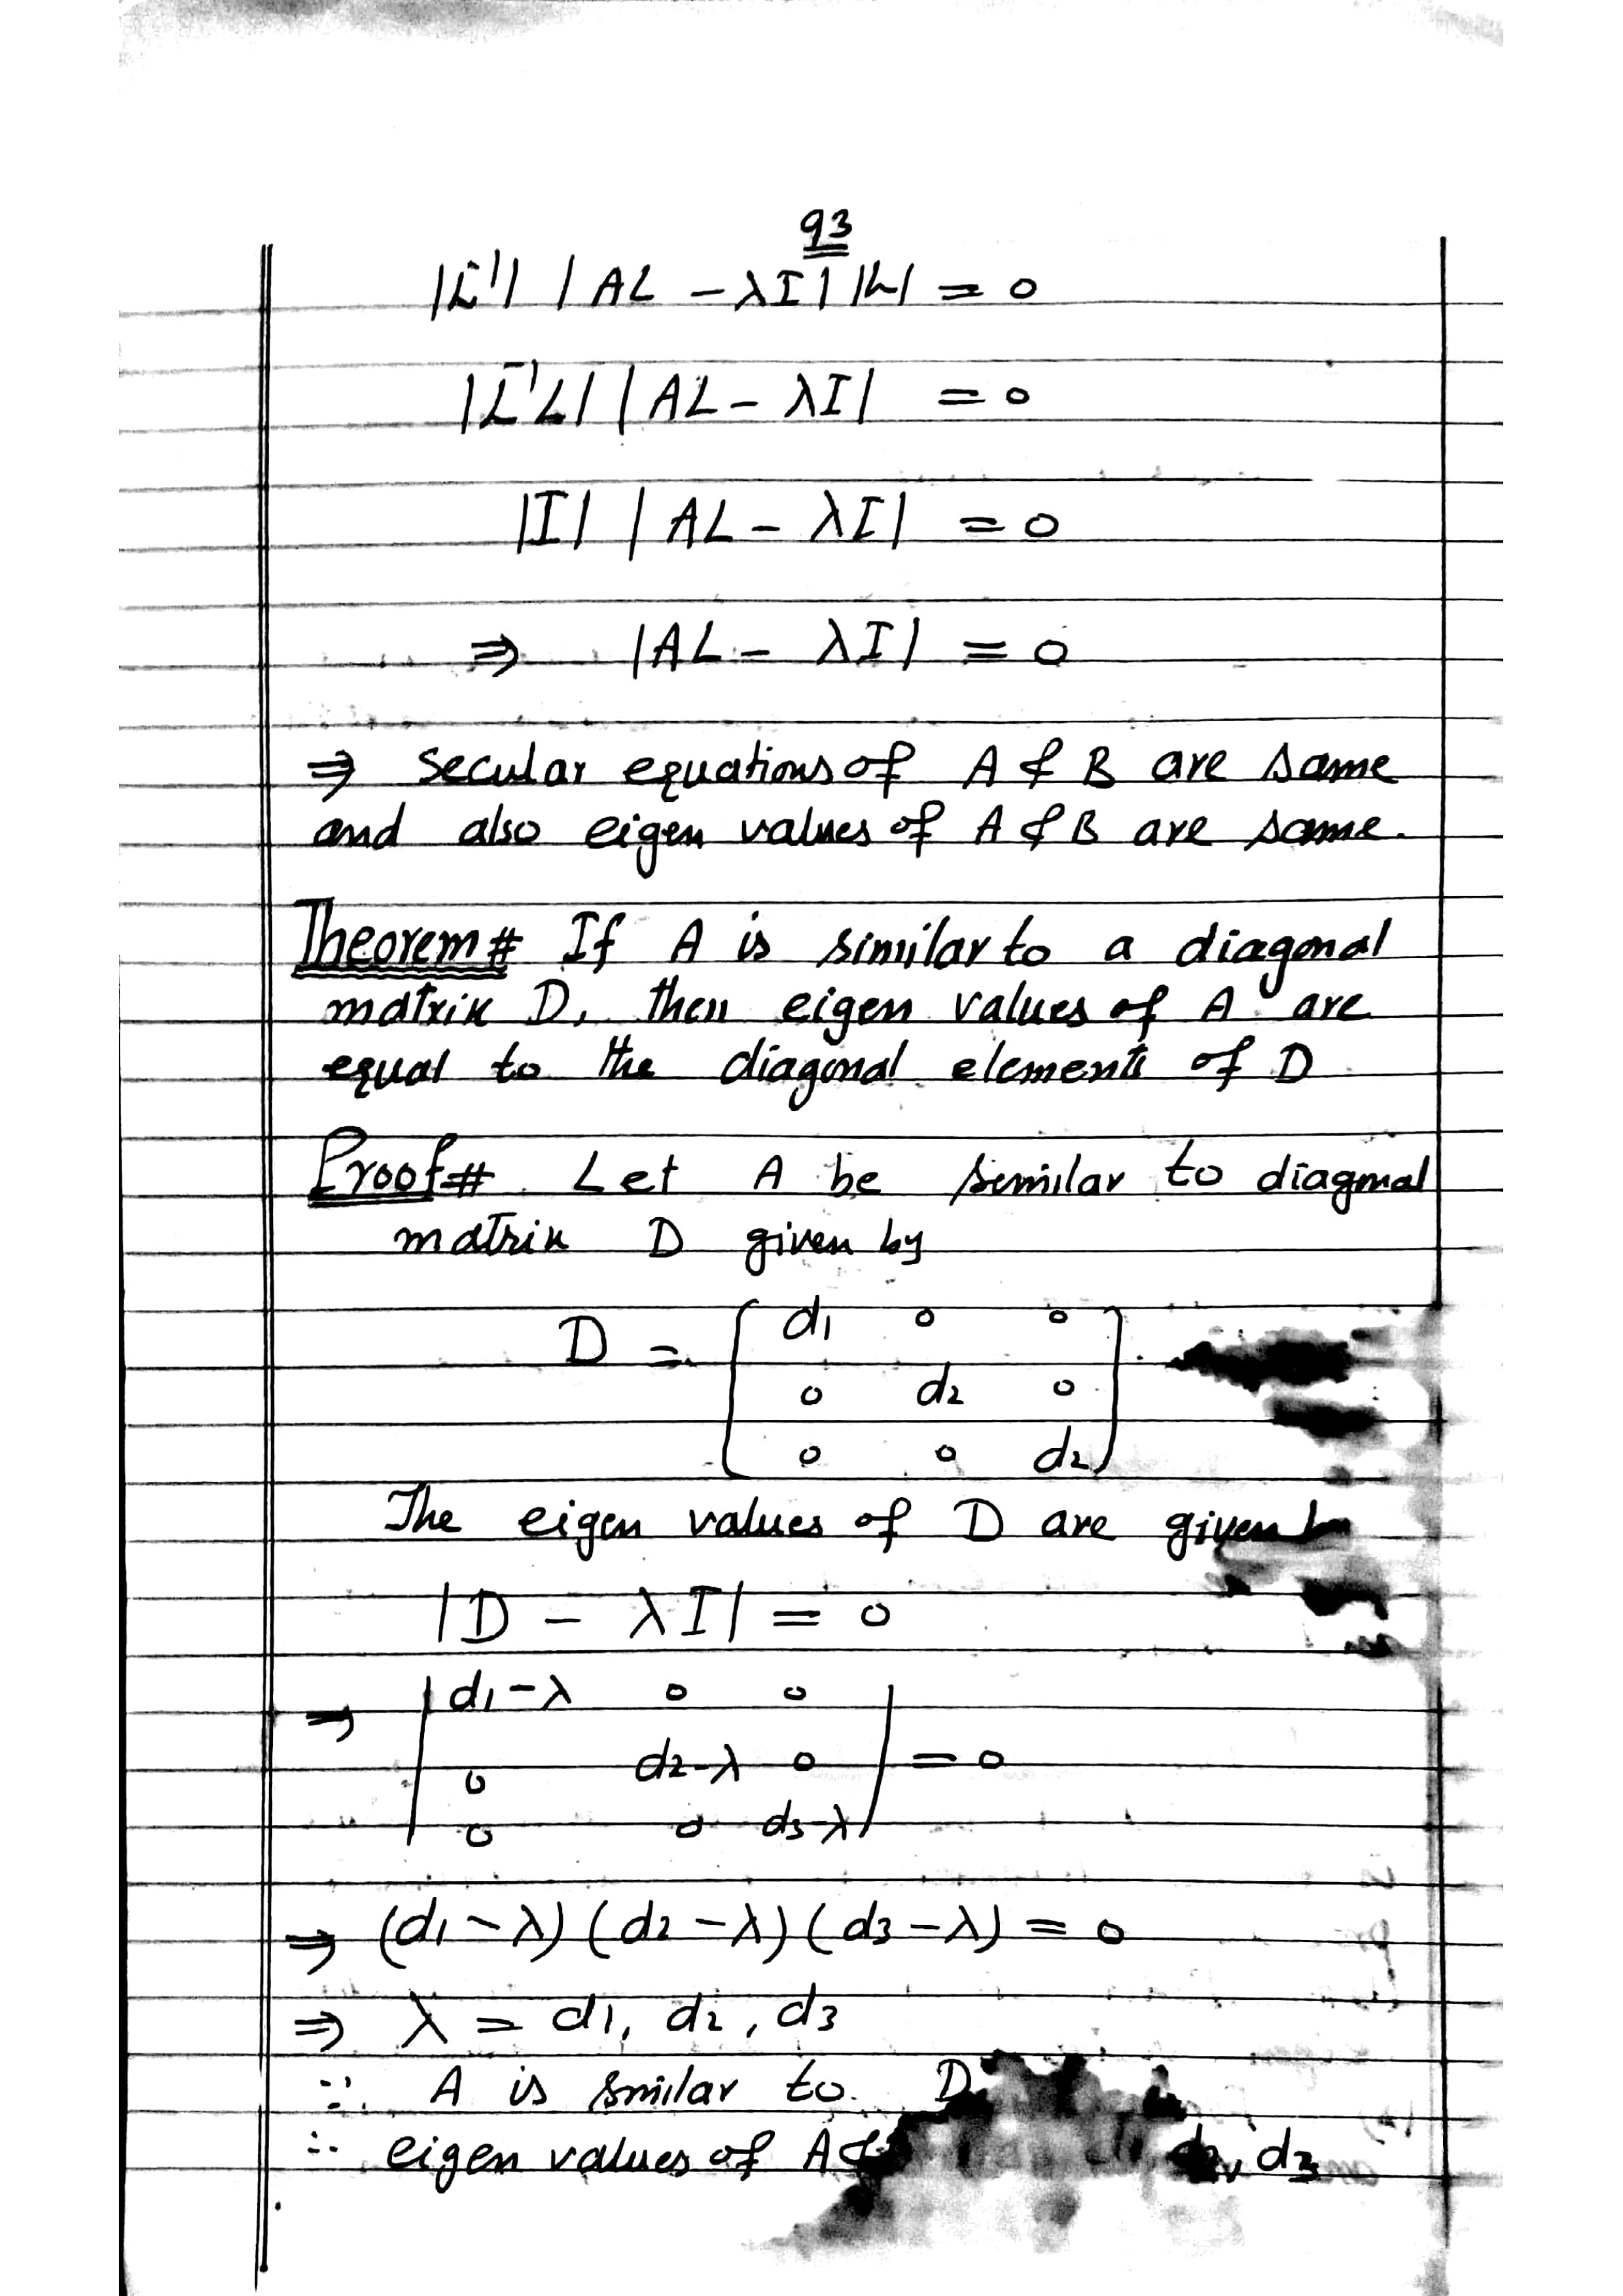 93
|L⁻¹| |AL - λI| |L| = 0
|L⁻¹L| |AL - λI| = 0
|I| |AL - λI| = 0
⇒ |AL - λI| = 0
⇒ secular equations of A & B are same
and also eigen values of A & B are same.
Theorem# If A is similar to a diagonal
matrix D, then eigen values of A are
equal to the diagonal elements of D
Proof# Let A be similar to diagonal
matrix D given by
D = [ d1 0 0
0 d2 0
0 0 d2 ]
The eigen values of D are given
|D - λI| = 0
⇒ | d1-λ 0 0
0 d2-λ 0 | = 0
0 0 d3-λ |
⇒ (d1-λ) (d2-λ) (d3-λ) = 0
⇒ λ = d1, d2, d3
∵ A is smilar to D
∴ eigen values of A & d3